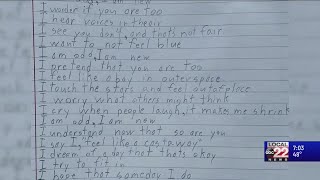 wonder if you are too
hear voices in the air
see you don't, and thats not fair
want to not feel blue
am odd, I am new
pretend that you are too
feel like a boy in outerspace
touch the stars and feel out of place
worry what others might think
cry when people laugh, it makes me shrink
am odd, I am new
understand now that so are you
say I, "feel like a castaway"
dream of a day that thats okay
I try to fit in
hope that someday I do
LOCAL
abc 22
NEWS
7:03
48°